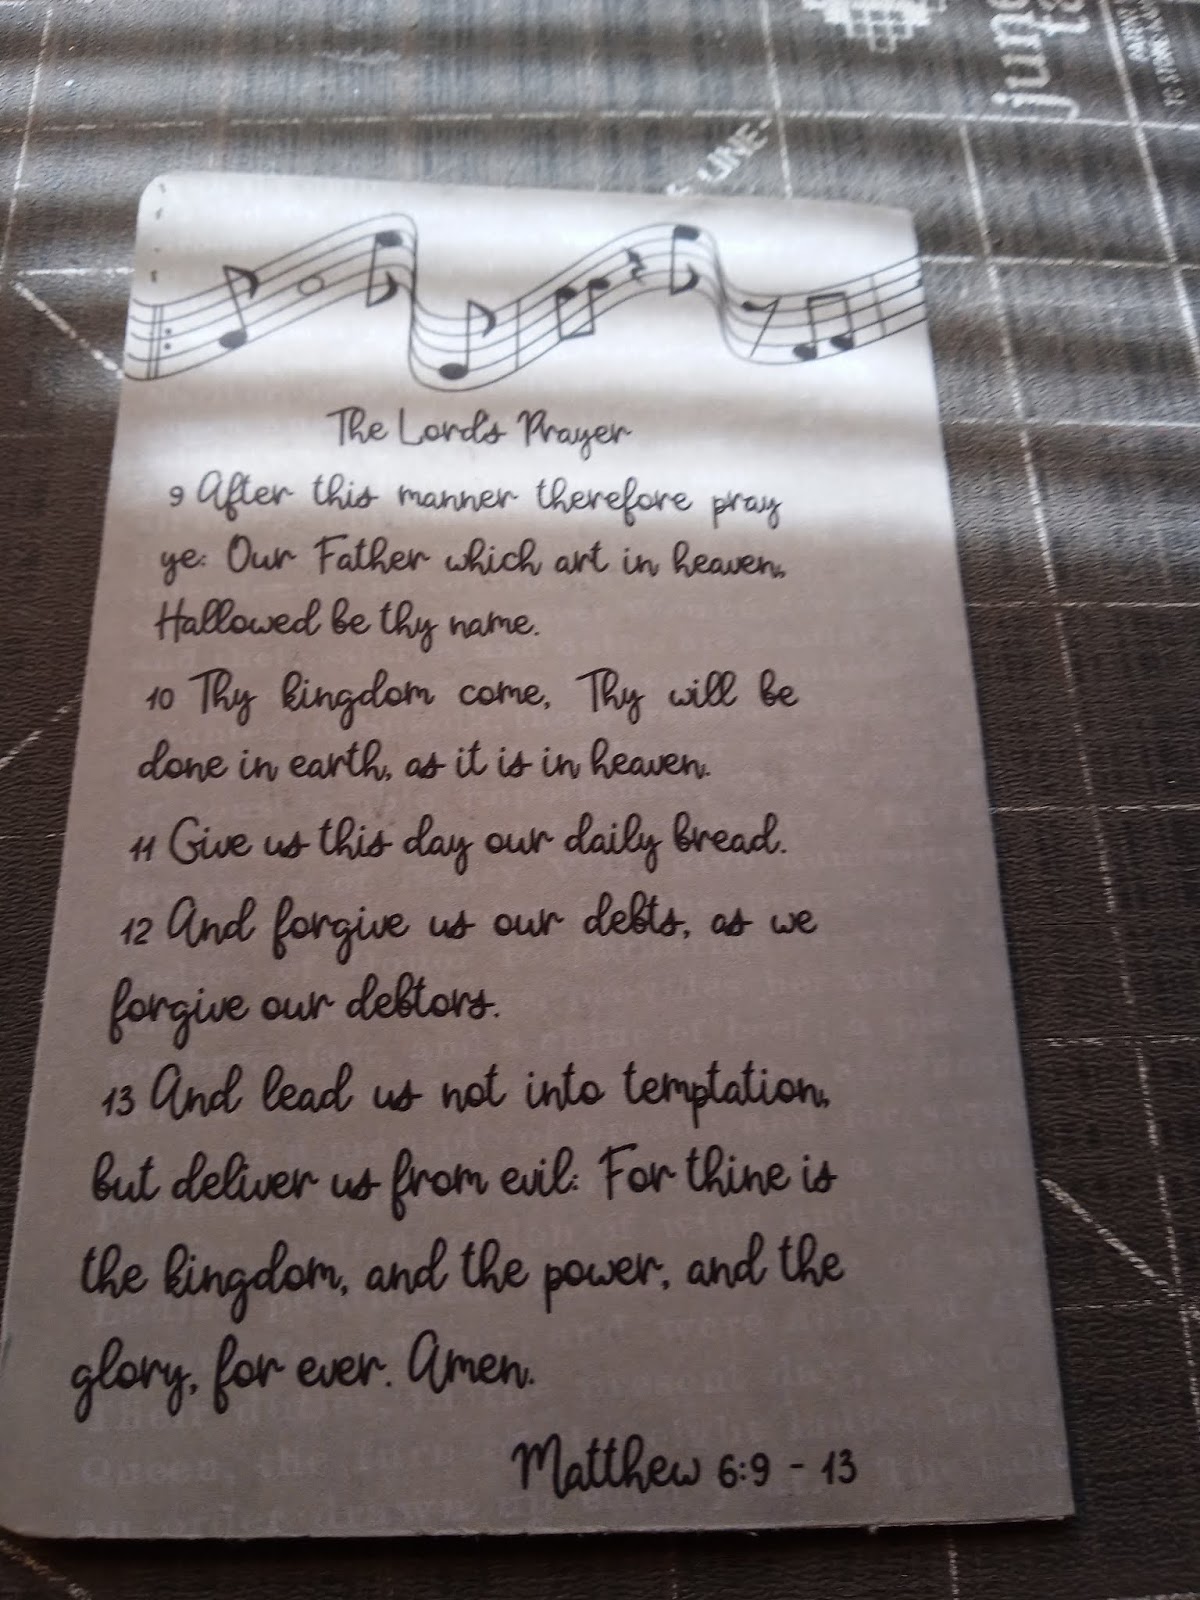 june
The Lord's Prayer
9 After this manner therefore pray
ye: Our Father which art in heaven,
Hallowed be thy name.
10 Thy kingdom come, Thy will be
done in earth, as it is in heaven.
11 Give us this day our daily bread.
12 And forgive us our debts, as we
forgive our debtors.
13 And lead us not into temptation,
but deliver us from evil: For thine is
the kingdom, and the power, and the
glory, for ever. Amen.
Matthew 6:9 - 13